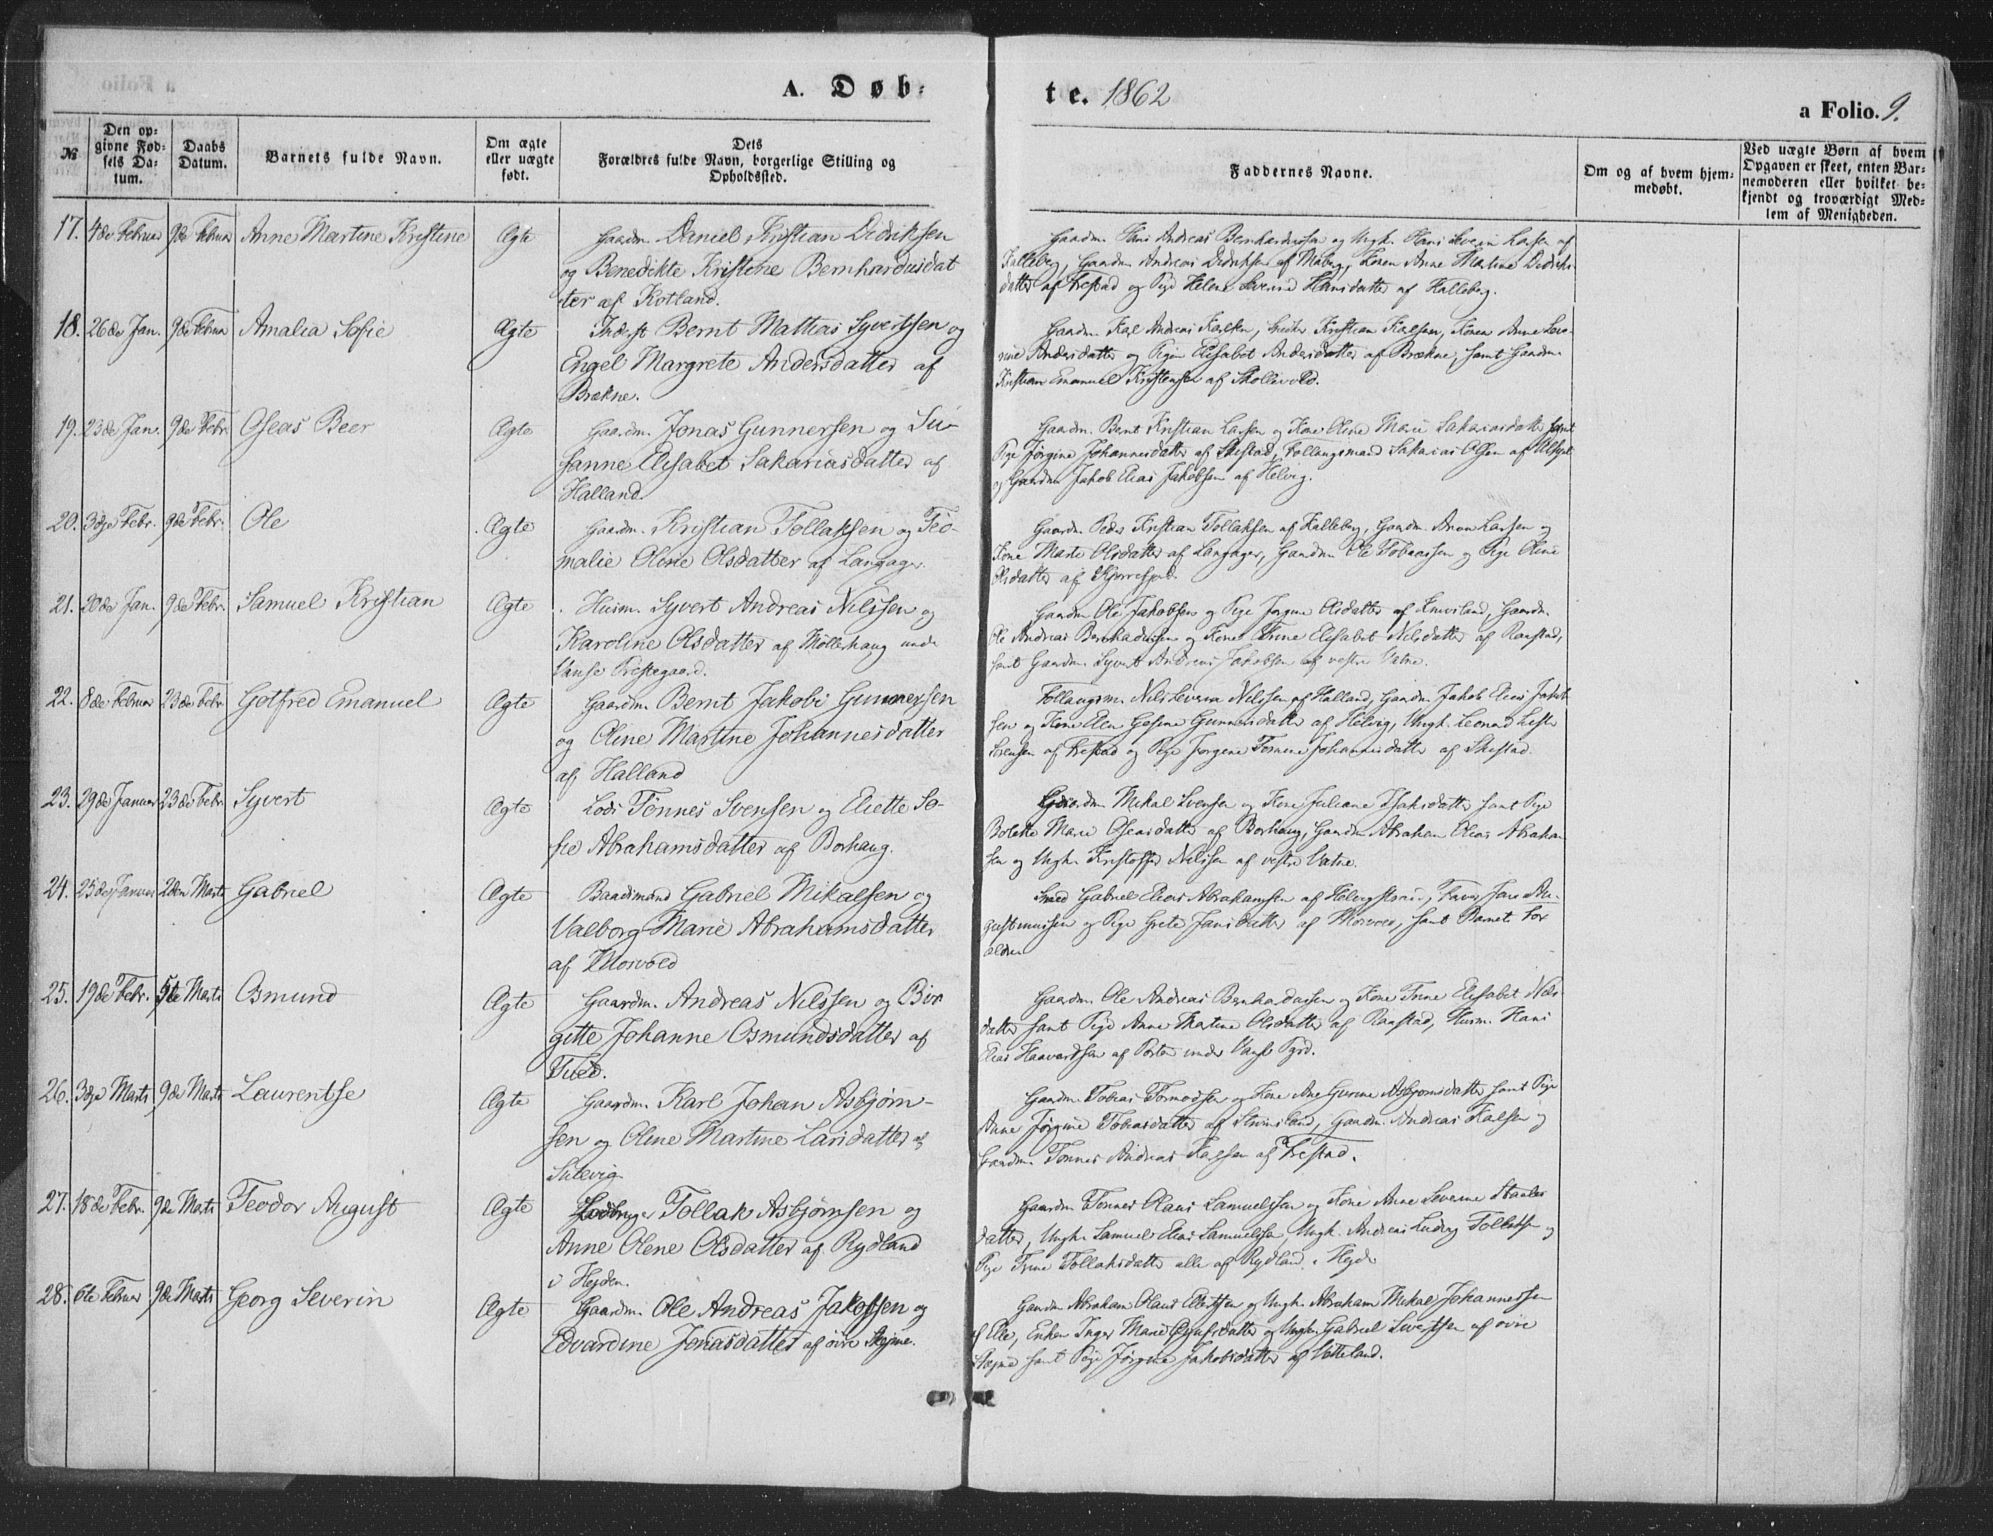 A. Døb-
te. 1862
a Folio. 9.
№
Den op-
givne Fød-
sels Da-
tum.
Daabs
Datum.
Barnets fulde Navn.
Om ægte
eller uægte
født.
Dets
Forældres fulde Navn, borgerlige Stilling og
Opholdssted.
Faddernes Navne.
Om og af hvem hjem-
medøbt.
Ved uægte Børn af hvem
Opgaven er skeet, enten Bar-
nemoderen eller hvilket be-
kjendt og troværdigt Med-
lem af Menigheden.
17. 4de Februar 9de Februar Anne Martine Kristine Ægte Gaardm. Daniel Kristian Didriksen
og Benedikte Kristine Bernhardusdat
ter af Kotland.
Gaardm. Hans Andreas Bernhardussen og Ungk. Hans Severin Larsen af
Kalleberg, Gaardm. Andreas Didriksen af Maberg, Konen Anne Martine Didriks-
datter af Frestad og Pige Helene Severine Hansdatter af Kalleberg.
18. 26de Jan. 9de Februar Amalia Sofie Ægte Inderst Bernt Mattias Syvertsen og
Engel Margrete Andersdatter af
Brækne.
Gaardm. Karl Andreas Karlsen, Kristian Karlsen, Konen Anne
Andersdatter og Pigen Elisabet Andersdatter af Brækne, samt Gaardm.
Kristian Emanuel Kristensen af Skollevold.
19. 23de Jan. 9de Febr. Oseas Beer Ægte Gaardm. Jonas Gunnersen og Su-
sanne Elisabet Sakariasdatter af
Halland.
Gaardm. Bernt Kristian Larsen og Kone Oline Marie Sakariasdatter samt
Pige Jørgine Johannesdatter af Skeistad, Follaugsmand Sakarias Olsen af
og Gaardm Jakob Elias Jakobsen af Helvig.
20. 3die Febr. 9de Febr. Ole Ægte Gaardm. Kristian Tollaksen og Teo-
malie Oline Olsdatter af Langager.
Gaardm. Peder Kristian Tollaksen af Kalleberg, Gaardm Aron Larsen og
Kone Marte Olsdatter af Langager, Gaardm Ole Tobiassen og Pige Oline
Olsdatter af
21. 30de Jan. 9de Febr. Samuel Kristian Ægte Husm. Syvert Andreas Nilssen og
Karoline Olsdatter af Møllerhaug under
Vanse Prestegaard.
Gaardm Ole Jakobsen og Pige Jørgine Olsdatter af Gaardm.
Ole Andreas Bernhardussen og Kone Trine Elisabet Nilsdatter af Raastad,
samt Gaardm Syvert Andreas Jakobsen af vestre Vatne.
22. 8de Februar 23de Febr. Gotfred Emanuel Ægte Gaardm. Bernt Jakobi Gunnersen
og Oline Martine Johannesdatter
af Halland
Follaugsm. Nils Severin Nilssen af Halland, Gaardm. Jakob Elias Jakob-
sen og Kone Elen Gesine Gunnersdatter af Helvig, Ungk. Leonard
Sørensen af Frestad og Pige Jørgine Tomine Johannesdatter af Skeistad.
23. 29de Januar 23de Febr. Syvert Ægte Lods Tønnes Svensen og Eliette So-
fie Abrahamsdatter af Borhaug.
Gaardm Mikal Svensen og Kone Juliane Isaksdatter samt Pige
Bolette Marie Oseasdatter af Borhaug, Gaardm Abraham Elias Abraham
sen og Ungk. Kristoffer Nilssen af vestre Vatne.
24. 25de Januar 2den Marts Gabriel Ægte Baadsmand Gabriel Mikalsen og
Valborg Marie Abrahamsdatter
af Morvold
Smed Gabriel Elias Abrahamsen af Jans Au-
gustinussen og Pige Grete Jansdatter af samt Barnets For
ældre
25. 19de Febr. 5te Marts Osmund Ægte Gaardm. Andreas Nilssen og Bir
gitte Johanne Osmundsdatter af
Tued.
Gaardm. Ole Andreas Bernhardussen og Kone Trine Elisabet Nils-
datter samt Pige Anne Martine Olsdatter af Raastad, Husm. Hans
Elias Haavardsen af Porten under Vanse Pgrd.
26. 3die Marts 9de Marts Laurentse Ægte Gaardm. Karl Johan Asbjørn-
sen og Oline Martine Larsdatter af
Sulevig
Gaardm. Tobias Tormodsen og Kone Ane Gurine Asbjørnsdatter samt Pige
Anne Jørgine Tobiasdatter af Gaardm. Andreas Kalsen og
Gaardm. Tønnes Andreas Kalsen af Frestad.
27. 18de Febr. 9de Marts Teodor August Ægte Jordbruger Tollak Asbjørnsen og
Anne Olene Olsdatter af Rydland
i Hejden.
Gaardm. Tønnes Olaus Samuelssen og Kone Anne Severine Staales
datter, Ungk. Samuel Elias Samuelssen, Ungk. Andreas Ludvig Tollaksen og
Pige Trine Tollaksdatter alle af Rydland i Hejde
28. 6te Februar 9de Marts Georg Severin Ægte Gaardm. Ole Andreas Jakobsen og
Edvardine Jonasdatter af øvre Skejme.
Gaardm Abraham Olaus Ellertsen og Ungk. Abraham Mikal Johannessen
af Elle, Enken Inger Marie og Ungk. Gabriel Sivertsen af øvre
Skejme samt Pige Jørgine Jakobsdatter af Vetteland.